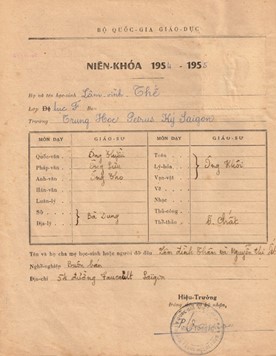 BỘ QUỐC-GIA GIÁO-DỤC
NIÊN-KHÓA 1954 - 1955
Họ và tên học-sinh Lâm vĩnh Thế
Lớp Đệ lục F
Trường Trung Học Petrus Ký Saigon
MÔN DẠY GIÁO-SƯ MÔN DẠY GIÁO-SƯ
Quốc-văn Ông
Pháp-văn Ông
Anh-văn Ông Thọ
Hán-văn
Luân-lý
Sử
Địa-lý Bà Dung
Toán
Lý-hóa Ông Khôi
Vạn-vật
Vẽ
Nhạc
Thể-thao Ô. Chất
Tên và họ cha mẹ học-sinh hoặc người đỡ đầu Lâm Vĩnh và Nguyễn thị
Nghề-nghiệp buôn bán
Địa-chỉ đường Saigon
Hiệu-Trưởng